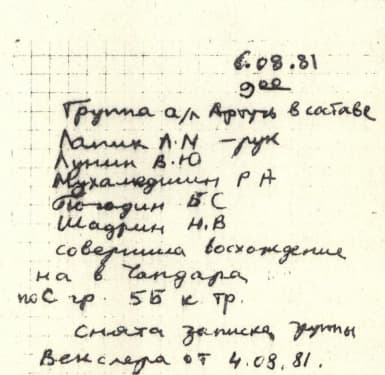 6.08.81
9⁰⁰
Группа а/л Артуч в составе
Лапик А.М - рук
Лунин В.Ю
Мухамедшин Р А
Погодин Б С
Шадрин Н.В
совершила восхождение
на в Чапдара
по С гр. 5Б к тр.
снята записка группы
Векслера от 4.08.81.